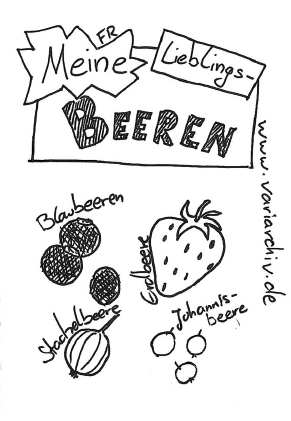 FR
Meine
Lieblings-
BEEREN
www.variarchiv.de
Blaubeeren
Erdbeere
Stachelbeere
Johannis-
beere